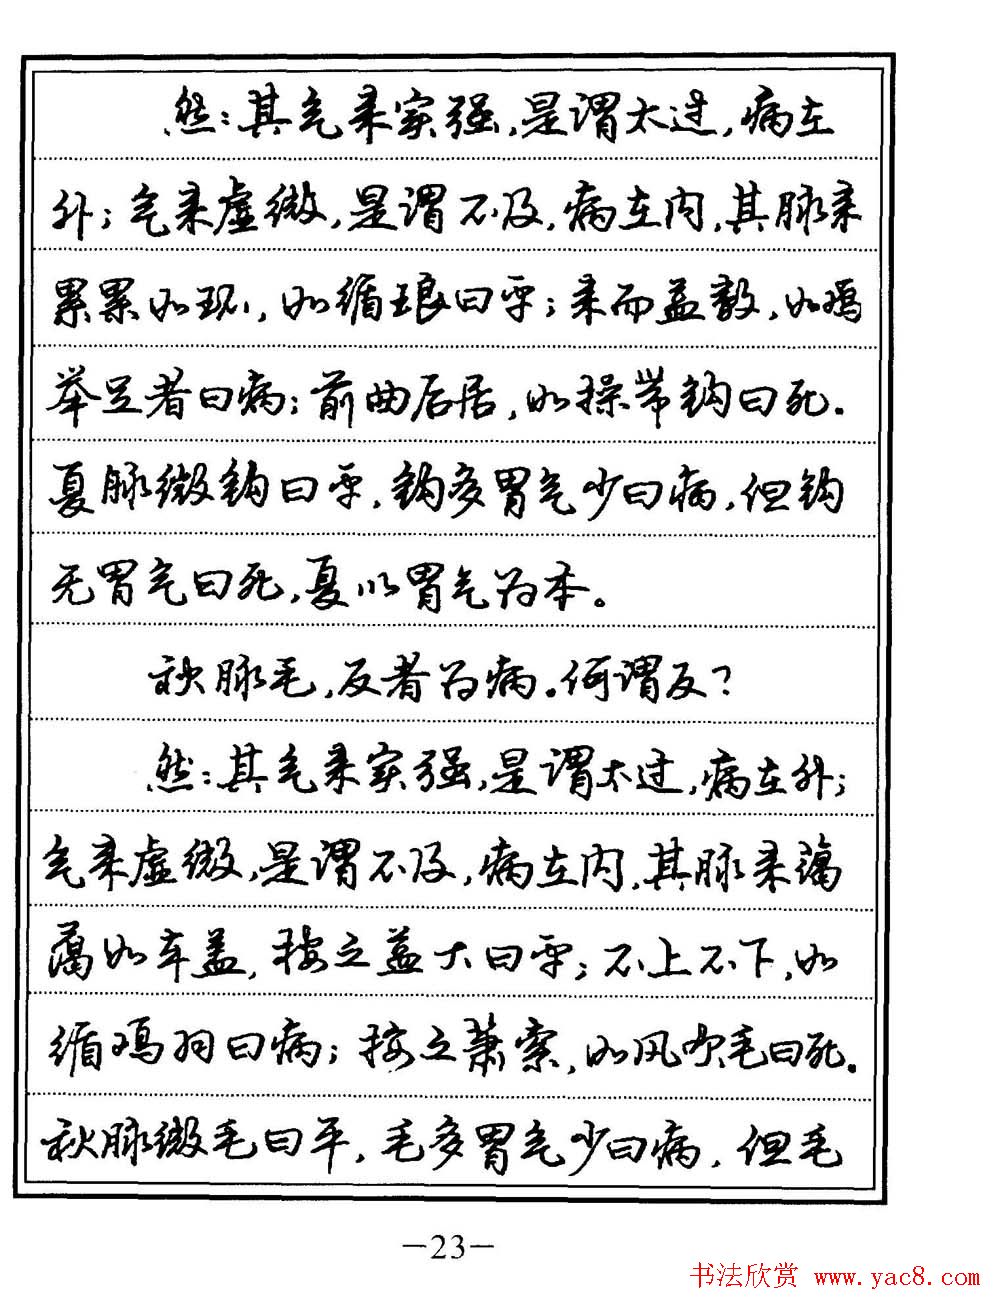 然：其气来实强，是谓太过，病在
外；气来虚微，是谓不及，病在内，其脉来
累累如环，如循琅曰平；来而益数，如鸡
举足者曰病；前曲后居，如操带钩曰死．
夏脉微钩曰平，钩多胃气少曰病，但钩
无胃气曰死，夏以胃气为本。
秋脉毛，反者为病。何谓反？
然：其气来实强，是谓太过，病在外；
气来虚微，是谓不及，病在内，其脉来蔼
蔼如车盖，按之益大曰平；不上不下，如
循鸡羽曰病；按之萧索，如风吹毛曰死。
秋脉微毛曰平，毛多胃气少曰病，但毛
—23—
书法欣赏 www.yac8.com